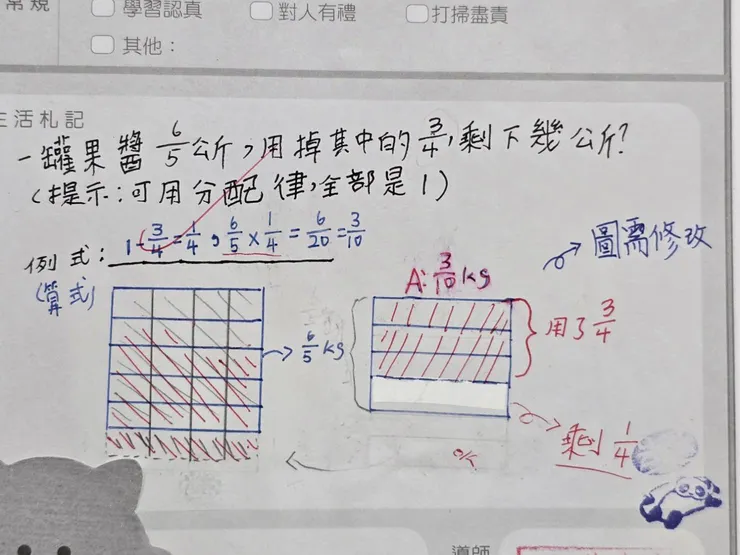 常規
學習認真 對人有禮 打掃盡責
其他：
生活札記
一罐果醬 6/5 公斤，用掉其中的 3/4，剩下幾公斤？
（提示：可用分配律，全部是1）
例式： 1-3/4=1/4，6/5×1/4=6/20=3/10
(算式)
圖需修改
A:3/10kg
6/5 kg
用了 3/4
剩 1/4
導師